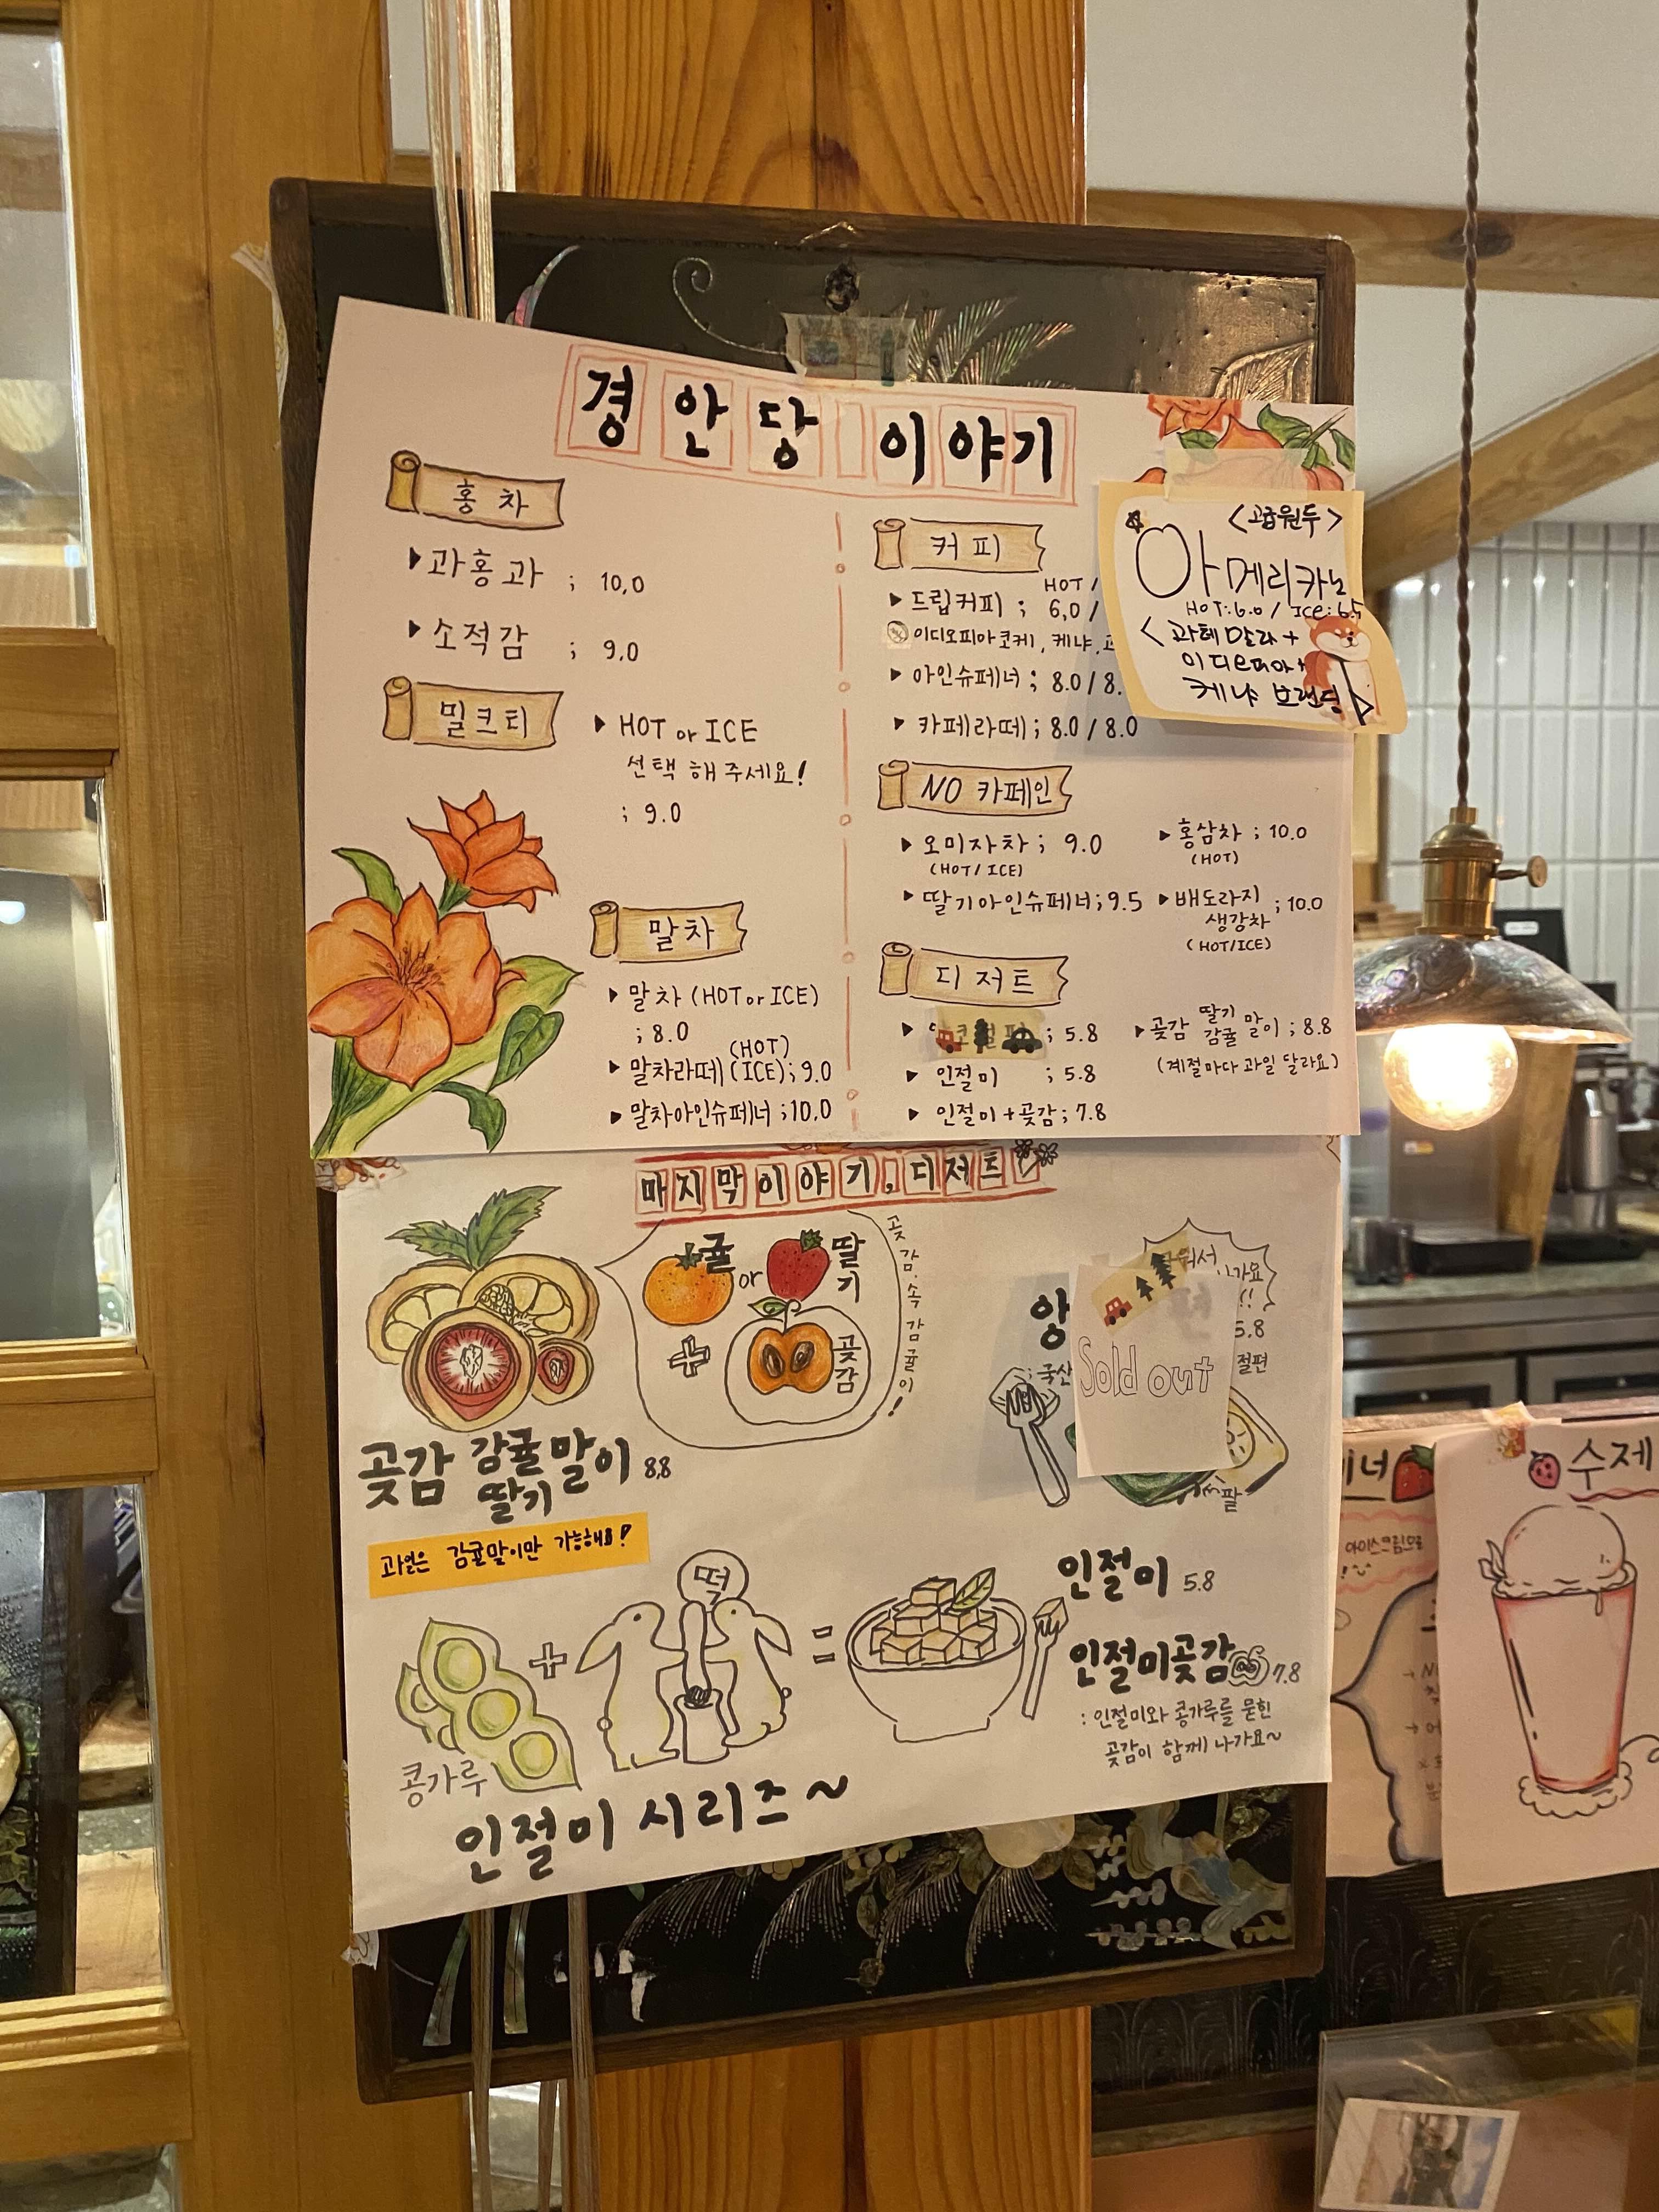 경안당 이야기
홍차
▶과홍과 ; 10,0
▶소적감 ; 9,0
밀크티
▶ HOT or ICE
선택 해 주세요!
; 9.0
말차
▶ 말차 (HOT or ICE)
; 8.0
(HOT)
▶ 말차라떼 (ICE); 9.0
▶ 말차아인슈페너 ; 10,0
커피
HOT /
▶ 드립커피 ; 6,0 /
이디오피아코케, 케냐,
▶ 아인슈페너 ; 8.0 / 8.
▶ 카페라떼 ; 8.0 / 8.0
<고급원두>
아메리카노
HOT:6.0 / ICE:6.5
<과테말라+
이디오피아+
케냐 브랜딩>
NO 카페인
▶ 오미자차 ; 9.0
(HOT/ICE)
▶ 딸기아인슈페너 ; 9.5
▶ 홍삼차 ; 10.0
(HOT)
▶ 배도라지
생강차 ; 10.0
(HOT/ICE)
디저트
▶ ; 5.8
▶ 인절미 ; 5.8
▶ 인절미+곶감 ; 7.8
▶곶감 딸기 감귤 말이 ; 8.8
(계절마다 과일 달라요)
마지막이야기, 디저트
귤 or 딸기
+
곶감
곶감 속 감귤이!
곶감 감귤 딸기 말이 8.8
과일은 감귤말이만 가능해요!
앙
; 국산
Sold out
워서
가요
!!
5.8
절편
팥
떡
+
=
콩가루
인절미 5.8
인절미곶감 7.8
: 인절미와 콩가루를 묻힌
곶감이 함께 나가요~
인절미 시리즈~
너
아이스크림으로
수제